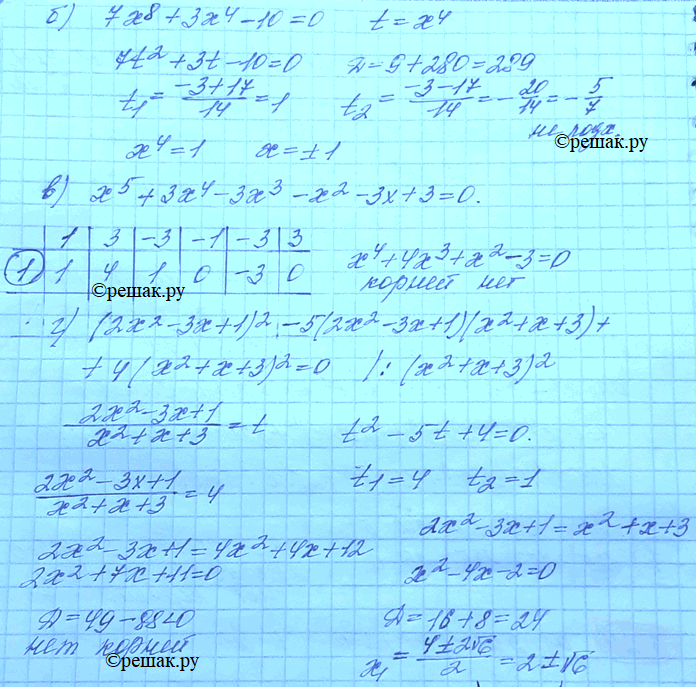 б) 7x⁸ + 3x⁴ − 10 = 0   t = x⁴
7t² + 3t − 10 = 0   Д = 9 + 280 = 289
t₁ = (−3+17)/14 = 1   t₂ = (−3−17)/14 = −20/14 = −5/7
не подх.
©решак.ру
x⁴ = 1   x = ±1
в) x⁵ + 3x⁴ − 3x³ − x² − 3x + 3 = 0.
1 | 3 | −3 | −1 | −3 | 3
1 | 1 | 4 | 1 | 0 | −3 | 0
x⁴ + 4x³ + x² − 3 = 0
корней нет
©решак.ру
г) (2x² − 3x + 1)² − 5(2x² − 3x + 1)(x² + x + 3) +
+ 4(x² + x + 3)² = 0   /: (x² + x + 3)²
(2x² − 3x + 1)/(x² + x + 3) = t   t² − 5t + 4 = 0.
(2x² − 3x + 1)/(x² + x + 3) = 4   t₁ = 4   t₂ = 1
2x² − 3x + 1 = x² + x + 3
2x² − 3x + 1 = 4x² + 4x + 12
2x² + 7x + 11 = 0   x² − 4x − 2 = 0
Д = 49 − 88 < 0   Д = 16 + 8 = 24
нет корней
x₁ = (4 ± 2√6)/2 = 2 ± √6
©решак.ру